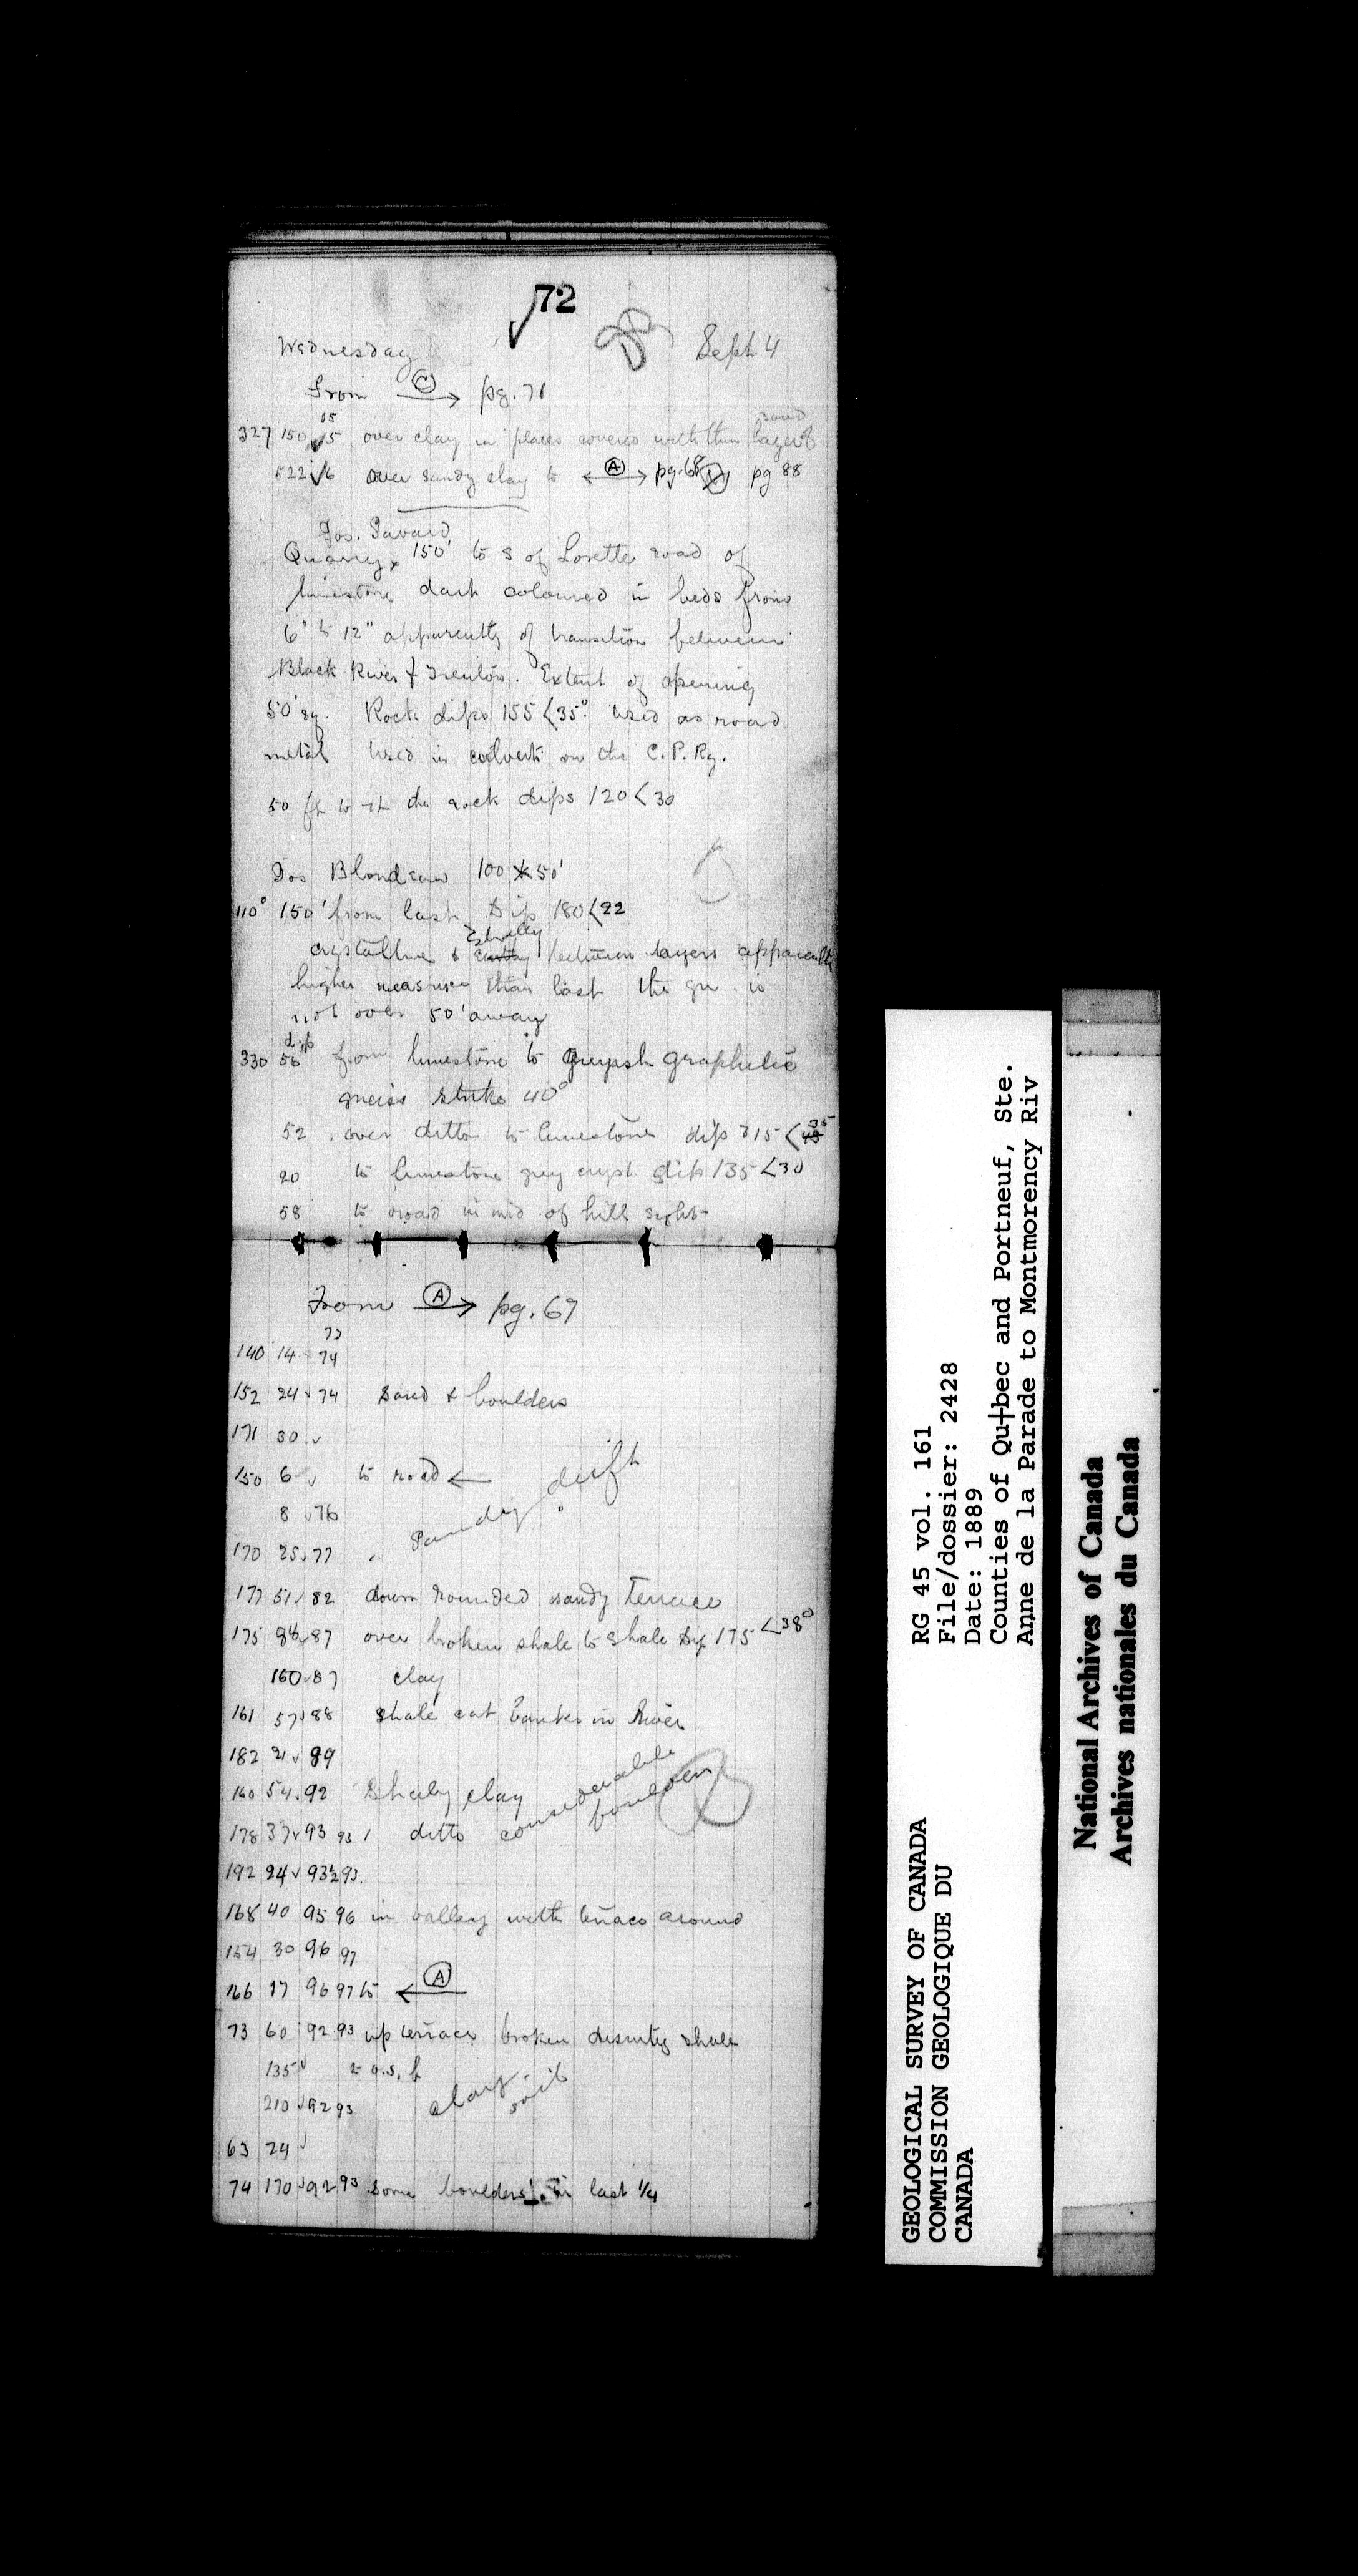 72
Wednesday Sept 4
From C → pg. 71
05 sand
327 150 √5 over clay in places covered with thin layer of
522 √6 over sandy clay to ←A→ pg. 68 pg 88
Jos. Savard
Quarry 150' to S of Lorette road of
limestone dark coloured in beds from
6" to 12" apparently of transition between
Black River & Trenton. Extent of opening
50' sq. Rock dips 155 <35° used as road
metal used in culverts on the C. P. Ry.
50 ft to the rock dips 120 < 30
Jos Blondeau 100 x 50'
110° 150' from last Dip 180 <22
shaly
crystalline between layers apparently
higher measures than last the gn. is
not over 50' away
dip
330 56 from limestone to greyish graphitic
gneiss strike 40°
52 over ditto to limestone dip 315 < 35
20 to limestone grey cryst dip 135 <30
58 to road in mid of hill
From A → pg. 67
73
140 14 74
152 24 √ 74 Sand & boulders
171 30 √
150 6 √ to road ←
8 √ 76 Sandy drift
170 25 √ 77
177 51 √ 82 down rounded sandy terrace
175 84 √ 87 over broken shale to shale Dip 175 <38°
160 √ 87 clay
161 57 √ 88 shale cut banks in River
182 21 √ 89
160 54 √ 92 Shaly clay considerable boulders
178 37 √ 93 93 ditto
192 24 √ 93½ 93
168 40 95 96 in valley with terrace around
154 30 96 97
166 17 96 97 to ← A
73 60 92 93 up terrace broken shale
135 √
210 √ 92 93 clay soil
63 24 √
74 170 √ 92 93 some boulders in last ¼
GEOLOGICAL SURVEY OF CANADA
COMMISSION GEOLOGIQUE DU
CANADA
RG 45 vol. 161
File/dossier: 2428
Date: 1889
Counties of Qu†bec and Portneuf, Ste.
Anne de la Parade to Montmorency Riv
National Archives of Canada
Archives nationales du Canada